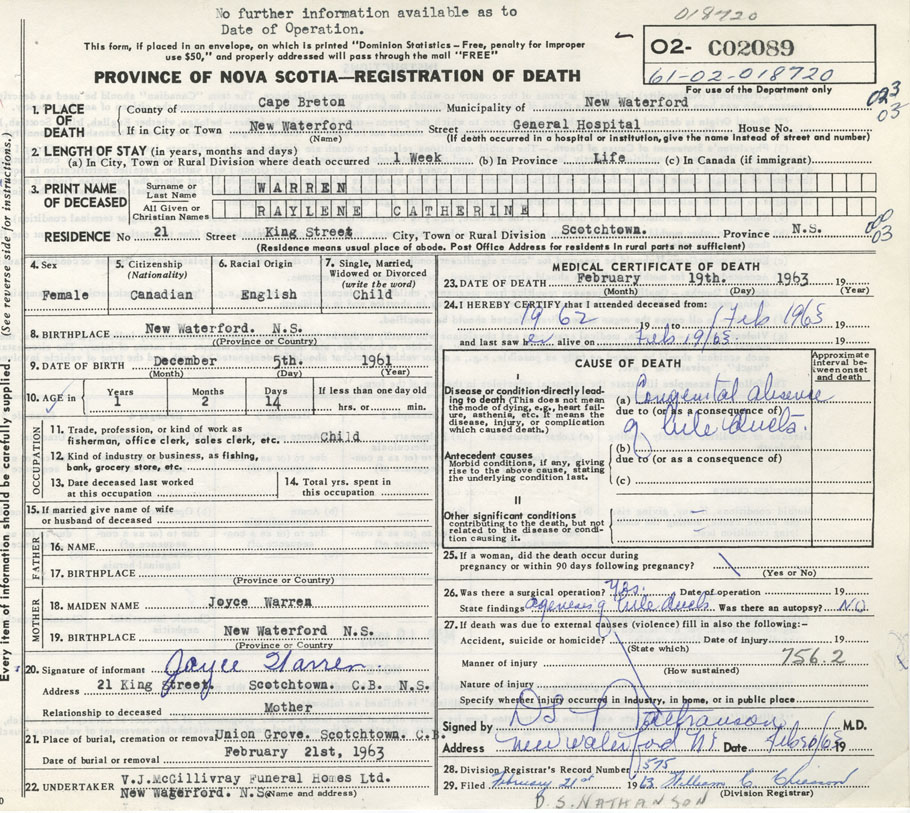 No further information available as to
Date of Operation.
018720
This form, if placed in an envelope, on which is printed "Dominion Statistics – Free, penalty for improper
use $50," and properly addressed will pass through the mail "FREE"
02- C02089
61-02-018720
For use of the Department only
PROVINCE OF NOVA SCOTIA—REGISTRATION OF DEATH
023
03
1. PLACE OF DEATH County of Cape Breton Municipality of New Waterford
If in City or Town New Waterford Street General Hospital House No.
(Name) (If death occurred in a hospital or institution, give the name instead of street and number)
2. LENGTH OF STAY (in years, months and days)
(a) In City, Town or Rural Division where death occurred 1 Week (b) In Province Life (c) In Canada (if immigrant)
3. PRINT NAME OF DECEASED Surname or Last Name WARREN
All Given or Christian Names RAYLENE CATHERINE
RESIDENCE No 21 Street King Street City, Town or Rural Division Scotchtown. Province N.S.
03
(Residence means usual place of abode. Post Office Address for residents in rural parts not sufficient)
4. Sex Female
5. Citizenship (Nationality) Canadian
6. Racial Origin English
7. Single, Married, Widowed or Divorced (write the word) Child
8. BIRTHPLACE New Waterford. N.S.
(Province or Country)
9. DATE OF BIRTH December 5th. 1961
(Month) (Day) (Year)
10. AGE in Years 1 Months 2 Days 14 If less than one day old hrs. or min.
OCCUPATION
11. Trade, profession, or kind of work as
fisherman, office clerk, sales clerk, etc. Child
12. Kind of industry or business, as fishing,
bank, grocery store, etc.
13. Date deceased last worked
at this occupation
14. Total yrs. spent in
this occupation
15. If married give name of wife
or husband of deceased
FATHER
16. NAME
17. BIRTHPLACE
(Province or Country)
MOTHER
18. MAIDEN NAME Joyce Warren
19. BIRTHPLACE New Waterford N.S.
(Province or Country)
20. Signature of informant Joyce Warren
Address 21 King Street. Scotchtown. C.B. N.S.
Relationship to deceased Mother
21. Place of burial, cremation or removal Union Grove. Scotchtown. C.B.
Date of burial or removal February 21st, 1963
22. UNDERTAKER V.J.McGillivray Funeral Homes Ltd.
New Waterford. N.S. (Name and address)
MEDICAL CERTIFICATE OF DEATH
23. DATE OF DEATH February 19th. 1963 19
(Month) (Day) (Year)
24. I HEREBY CERTIFY that I attended deceased from:
1962 19 to Feb 1963 19
and last saw her alive on Feb 19/63 19
CAUSE OF DEATH
Approximate interval between onset and death
I
Disease or condition directly leading to death (This does not mean the mode of dying, e.g., heart failure, asthenia, etc. It means the disease, injury, or complication which caused death.)
(a) Congenital absence
due to (or as a consequence of)
of bile ducts.
Antecedent causes
Morbid conditions, if any, giving rise to the above cause, stating the underlying condition last.
(b)
due to (or as a consequence of)
(c)
II
Other significant conditions
contributing to the death, but not related to the disease or condition causing it.
25. If a woman, did the death occur during
pregnancy or within 90 days following pregnancy?
(Yes or No)
26. Was there a surgical operation? Yes. Date of operation 19
State findings agenesis of bile ducts. Was there an autopsy? NO
27. If death was due to external causes (violence) fill in also the following:–
Accident, suicide or homicide? Date of injury 19
(State which)
756.2
Manner of injury
(How sustained)
Nature of injury
Specify whether injury occurred in industry, in home, or in public place
Signed by M.D.
Address New Waterford NS. Date Feb 20/63 19
28. Division Registrar's Record Number 575
29. Filed February 21st 1963 William C
(Division Registrar)
D.S. NATHANSON
Every item of information should be carefully supplied. (See reverse side for instructions.)